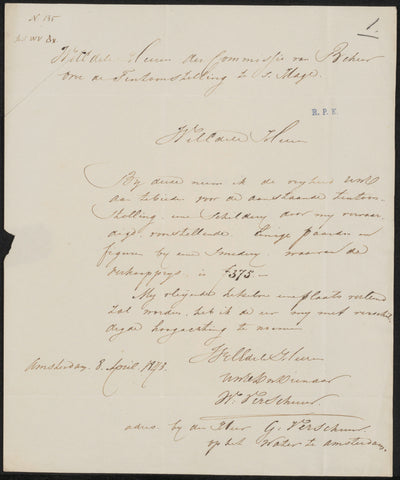 N. 135
1.
Weledele Heeren der Commissie van Beheer
over de Tentoonstelling te s. Hage.
R.P.K.
Weledele Heeren
By deze neem ik de vryheid UwE
aan te bieden voor de aanstaande tentoon-
stelling, een Schildery door my vervaar-
digd, voorstellende. Eenige paarden en
figuren by eene Smedery, waarvan de
verkoopprys is ƒ375.—
My vleijende dat dezelve eene plaats
zal worden, heb ik de eer my met verschul-
digde hoogachting te noemen
Amsterdam 8. April 1843.
Weledele Heeren
UwE Dw Dienaar
W. Verschuur
adres by den Heer G. Verschuur.
op het Water te Amsterdam.